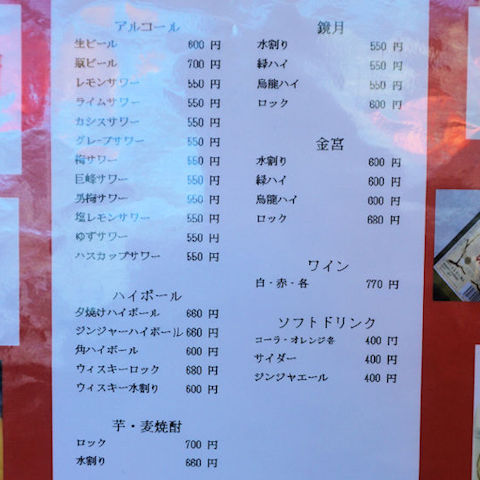 アルコール
生ビール 600 円
瓶ビール 700 円
レモンサワー 550 円
ライムサワー 550 円
カシスサワー 550 円
グレープサワー 550 円
梅サワー 550 円
巨峰サワー 550 円
男梅サワー 550 円
塩レモンサワー 550 円
ゆずサワー 550 円
ハスカップサワー 550 円
ハイボール
夕焼けハイボール 660 円
ジンジャーハイボール 660 円
角ハイボール 600 円
ウィスキーロック 680 円
ウィスキー水割り 600 円
芋・麦焼酎
ロック 700 円
水割り 660 円
鏡月
水割り 550 円
緑ハイ 550 円
烏龍ハイ 550 円
ロック 600 円
金宮
水割り 600 円
緑ハイ 600 円
烏龍ハイ 600 円
ロック 680 円
ワイン
白・赤・各 770 円
ソフトドリンク
コーラ・オレンジ各 400 円
サイダー 400 円
ジンジャエール 400 円